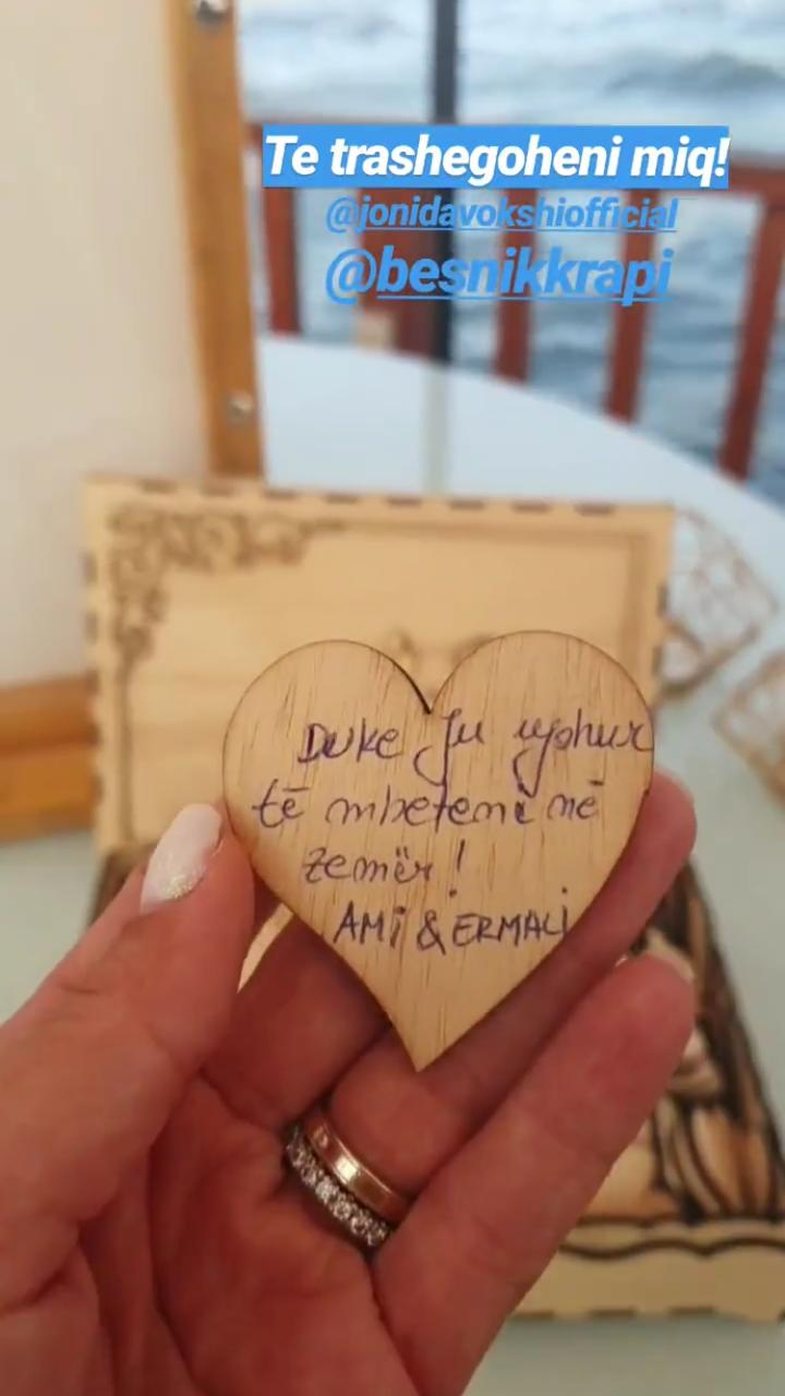 Te trashegoheni miq!
@jonidavokshiofficial
@besnikkrapi
Duke Ju uJohur
të mbetemi në
zemër!
AMi & ERMALi